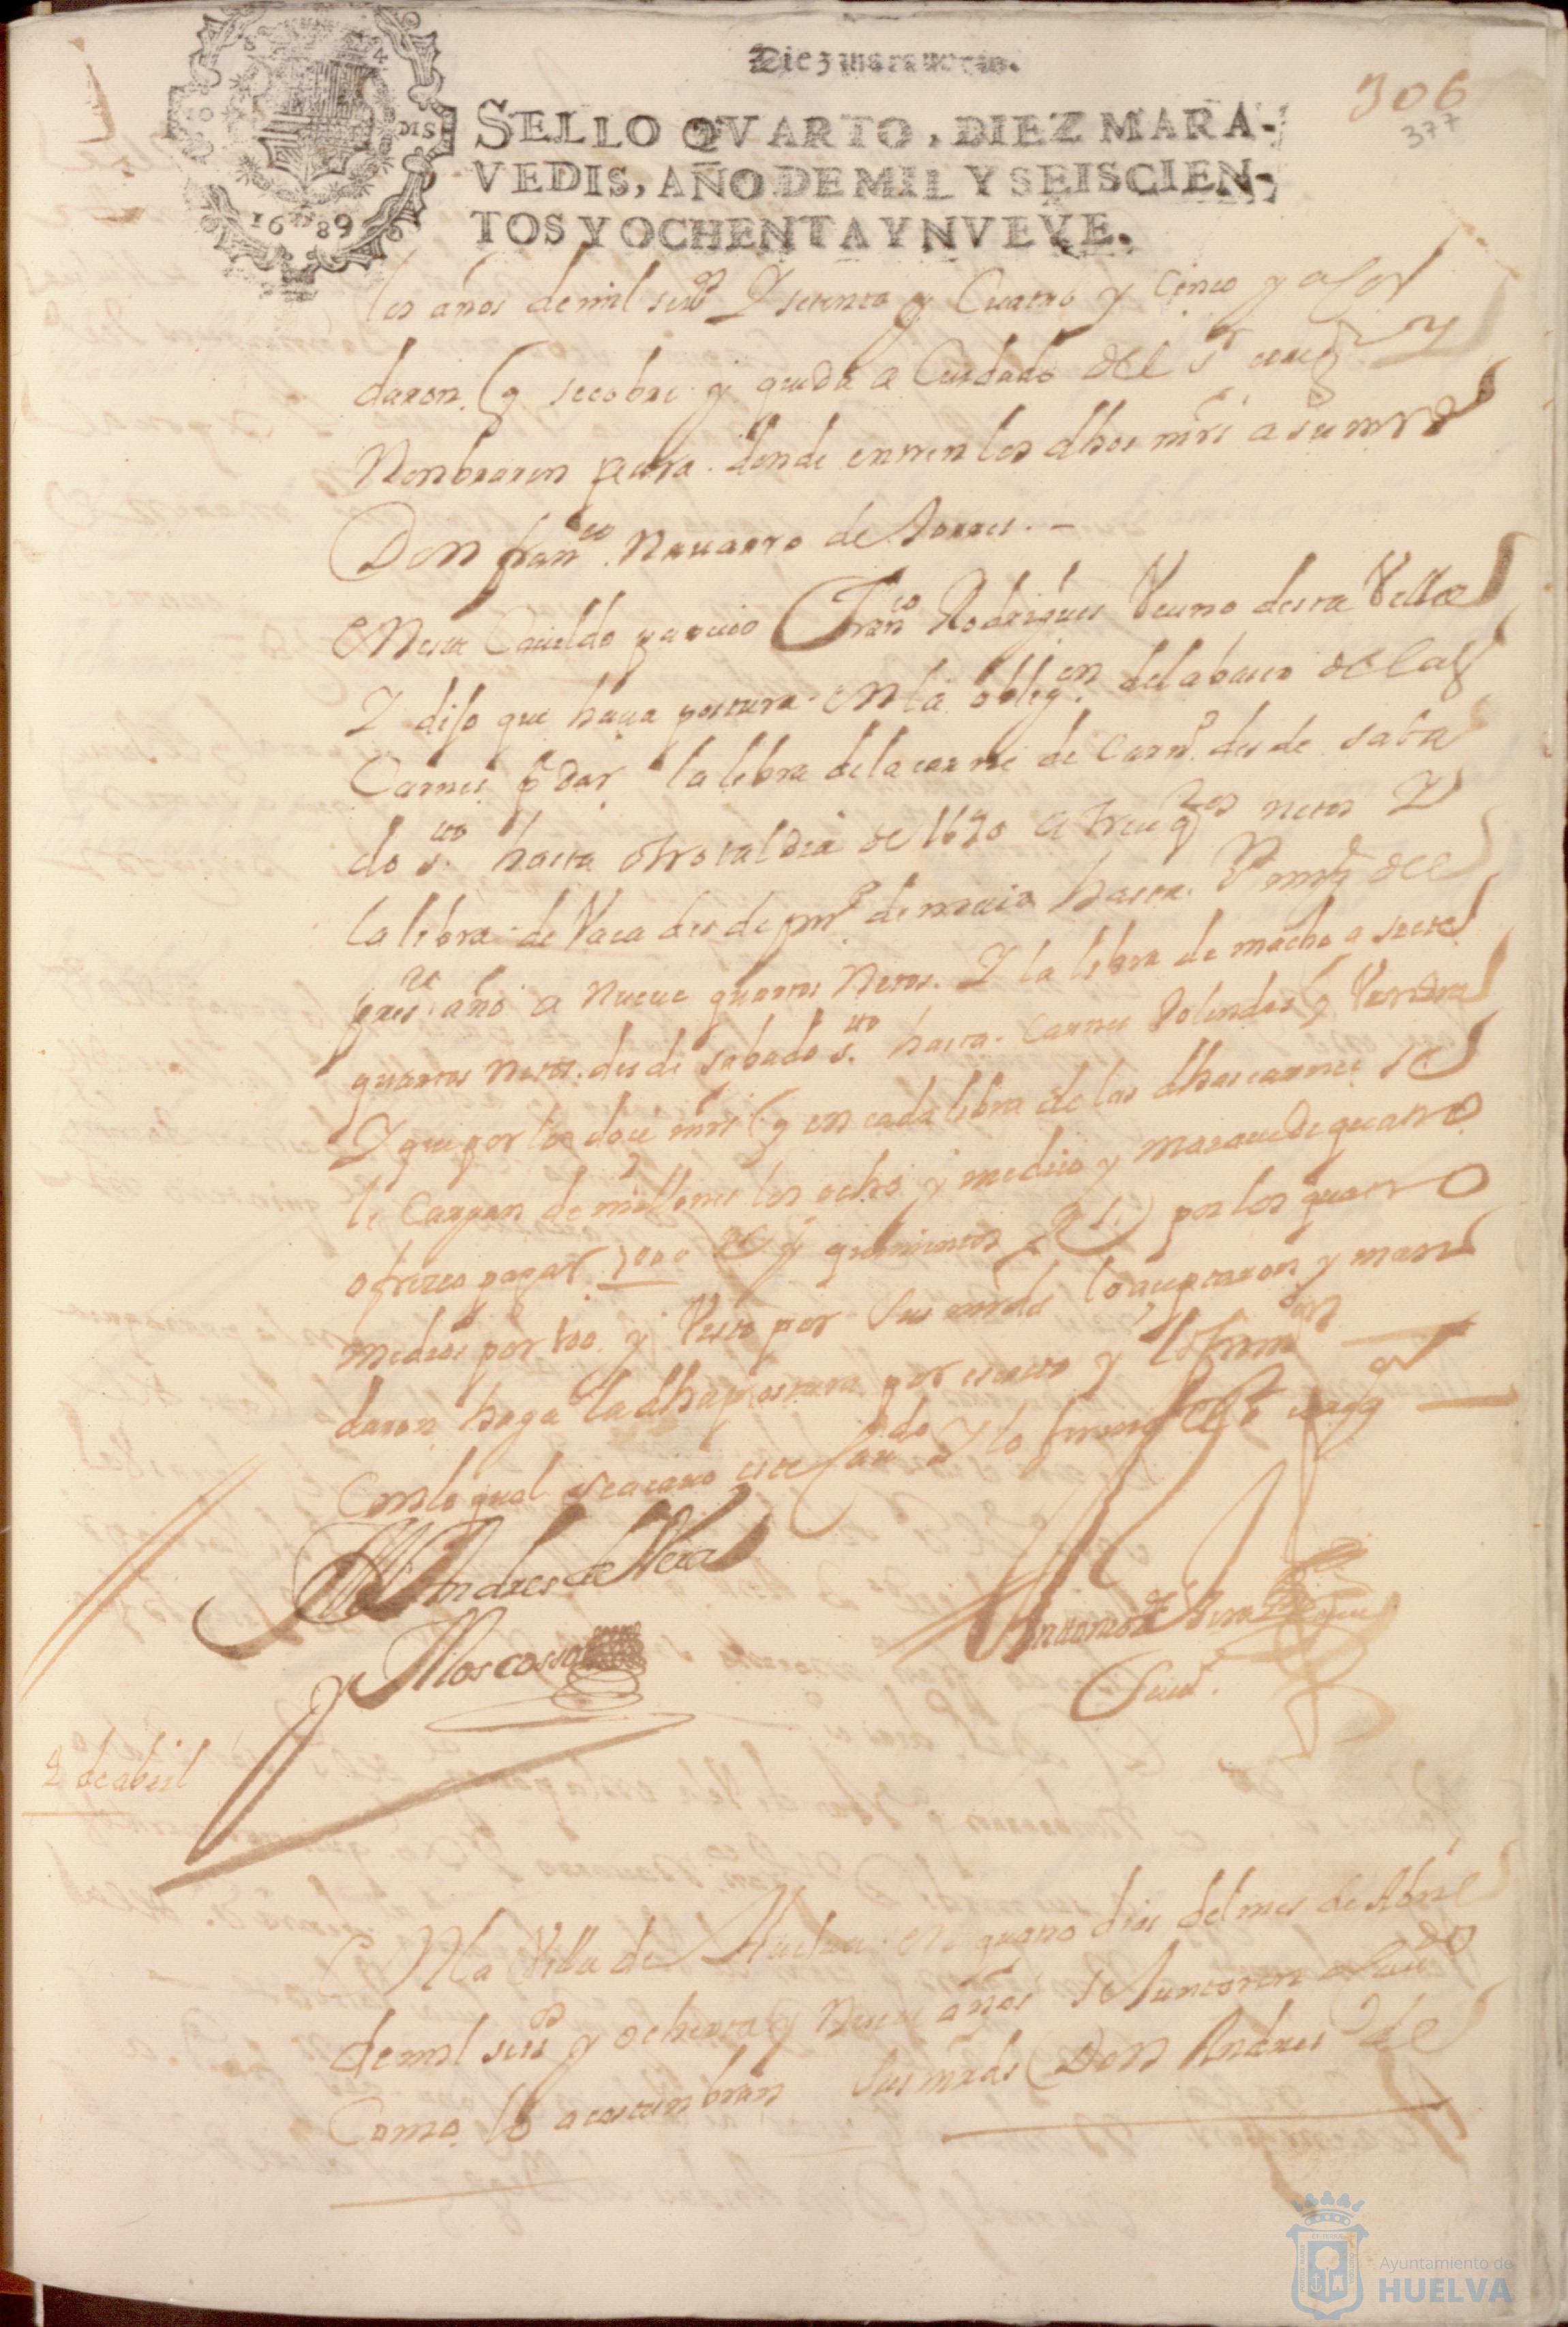 Diez maravedis.
306
377
SELLO QVARTO, DIEZ MARA-
VEDIS, AÑO DE MIL Y SEISCIEN-
TOS Y OCHENTA Y NVEVE.
1689
los años de mil seis.os Y setenta y Cuatro y Cinco y acor
daron q se cobre y queda a Cuidado del s.r
Nonbraron para donde entren los dhos mrs a su mrd
Don fran.co Nauarro de Torres.
En este Cauildo parecio Fran.co Rodrigues Vecino desta Villa
Y dijo que hacia postura en la oblig.on del abasto de las
Carnes p.a dar la libra de la carne de Carn.o desde saba
do s.to hasta otro tal dia de 1690 a trece q.tos netos Y
la libra de Vaca desde pri.o de maio hasta del
pres.te año a nueue quartos netos. Y la libra de macho a siete
quartos netos desde sabado s.to hasta Carnes tolendas
Y que por los doce mrs q en cada libra de las dhas carnes se
le Cargan de millones los ocho y medio y marauedi quatro
ofrezco pagar y quinientos por los quatro
medios por y Visto por sus mrds lo aceptaron y man
daron haga la dha postura por escrito y lo firmaron
Con lo qual se acauo este Cau.do Y lo firmo
Don Andres de Vera
y Moscosso
Antonio de
Scriu.o
2 de abril
En la Villa de Huelua en quatro dias del mes de Abril
de mil seis.os y ochenta y nueue años se Juntaron a Cau.do
Como lo acostunbran sus mrds Don Andres de
Ayuntamiento de
HUELVA